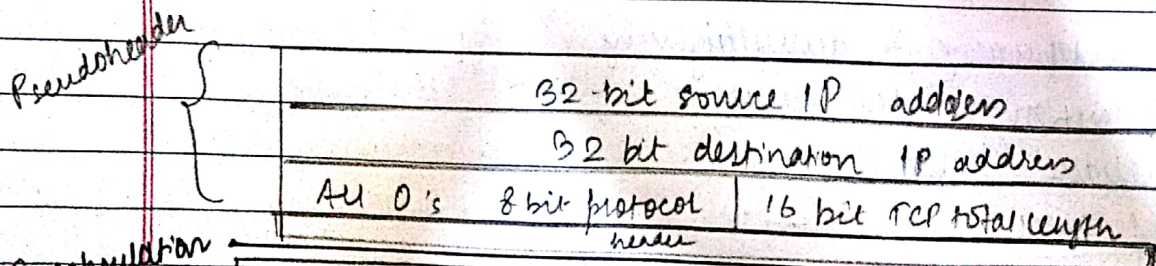 Pseudoheader
32-bit source IP address
32 bit destination IP address
All 0's 8 bit protocol 16 bit TCP total length
header